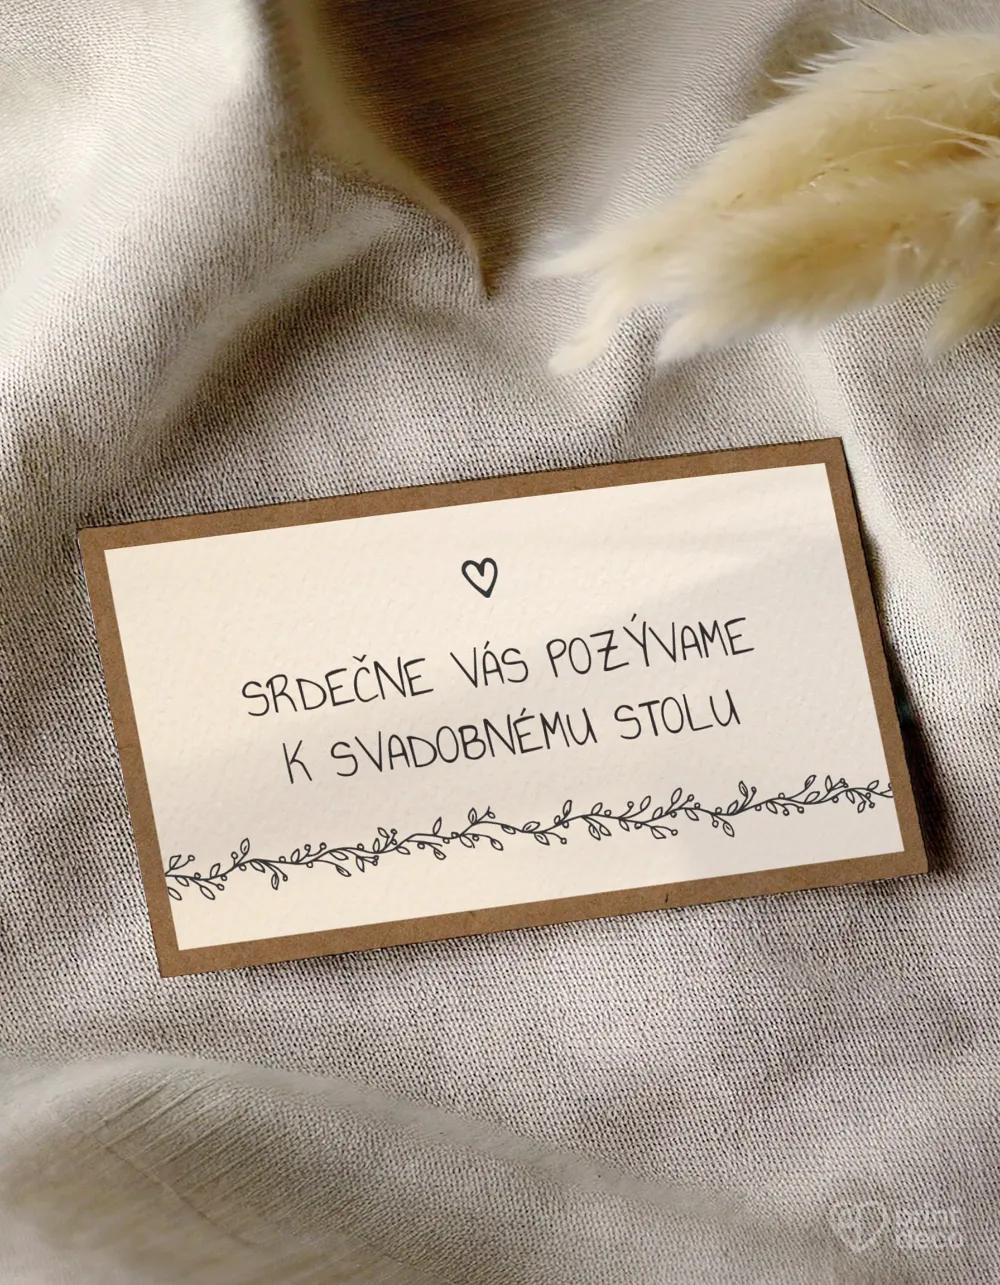 SRDEČNE VÁS POZÝVAME
K SVADOBNÉMU STOLU
print
deco